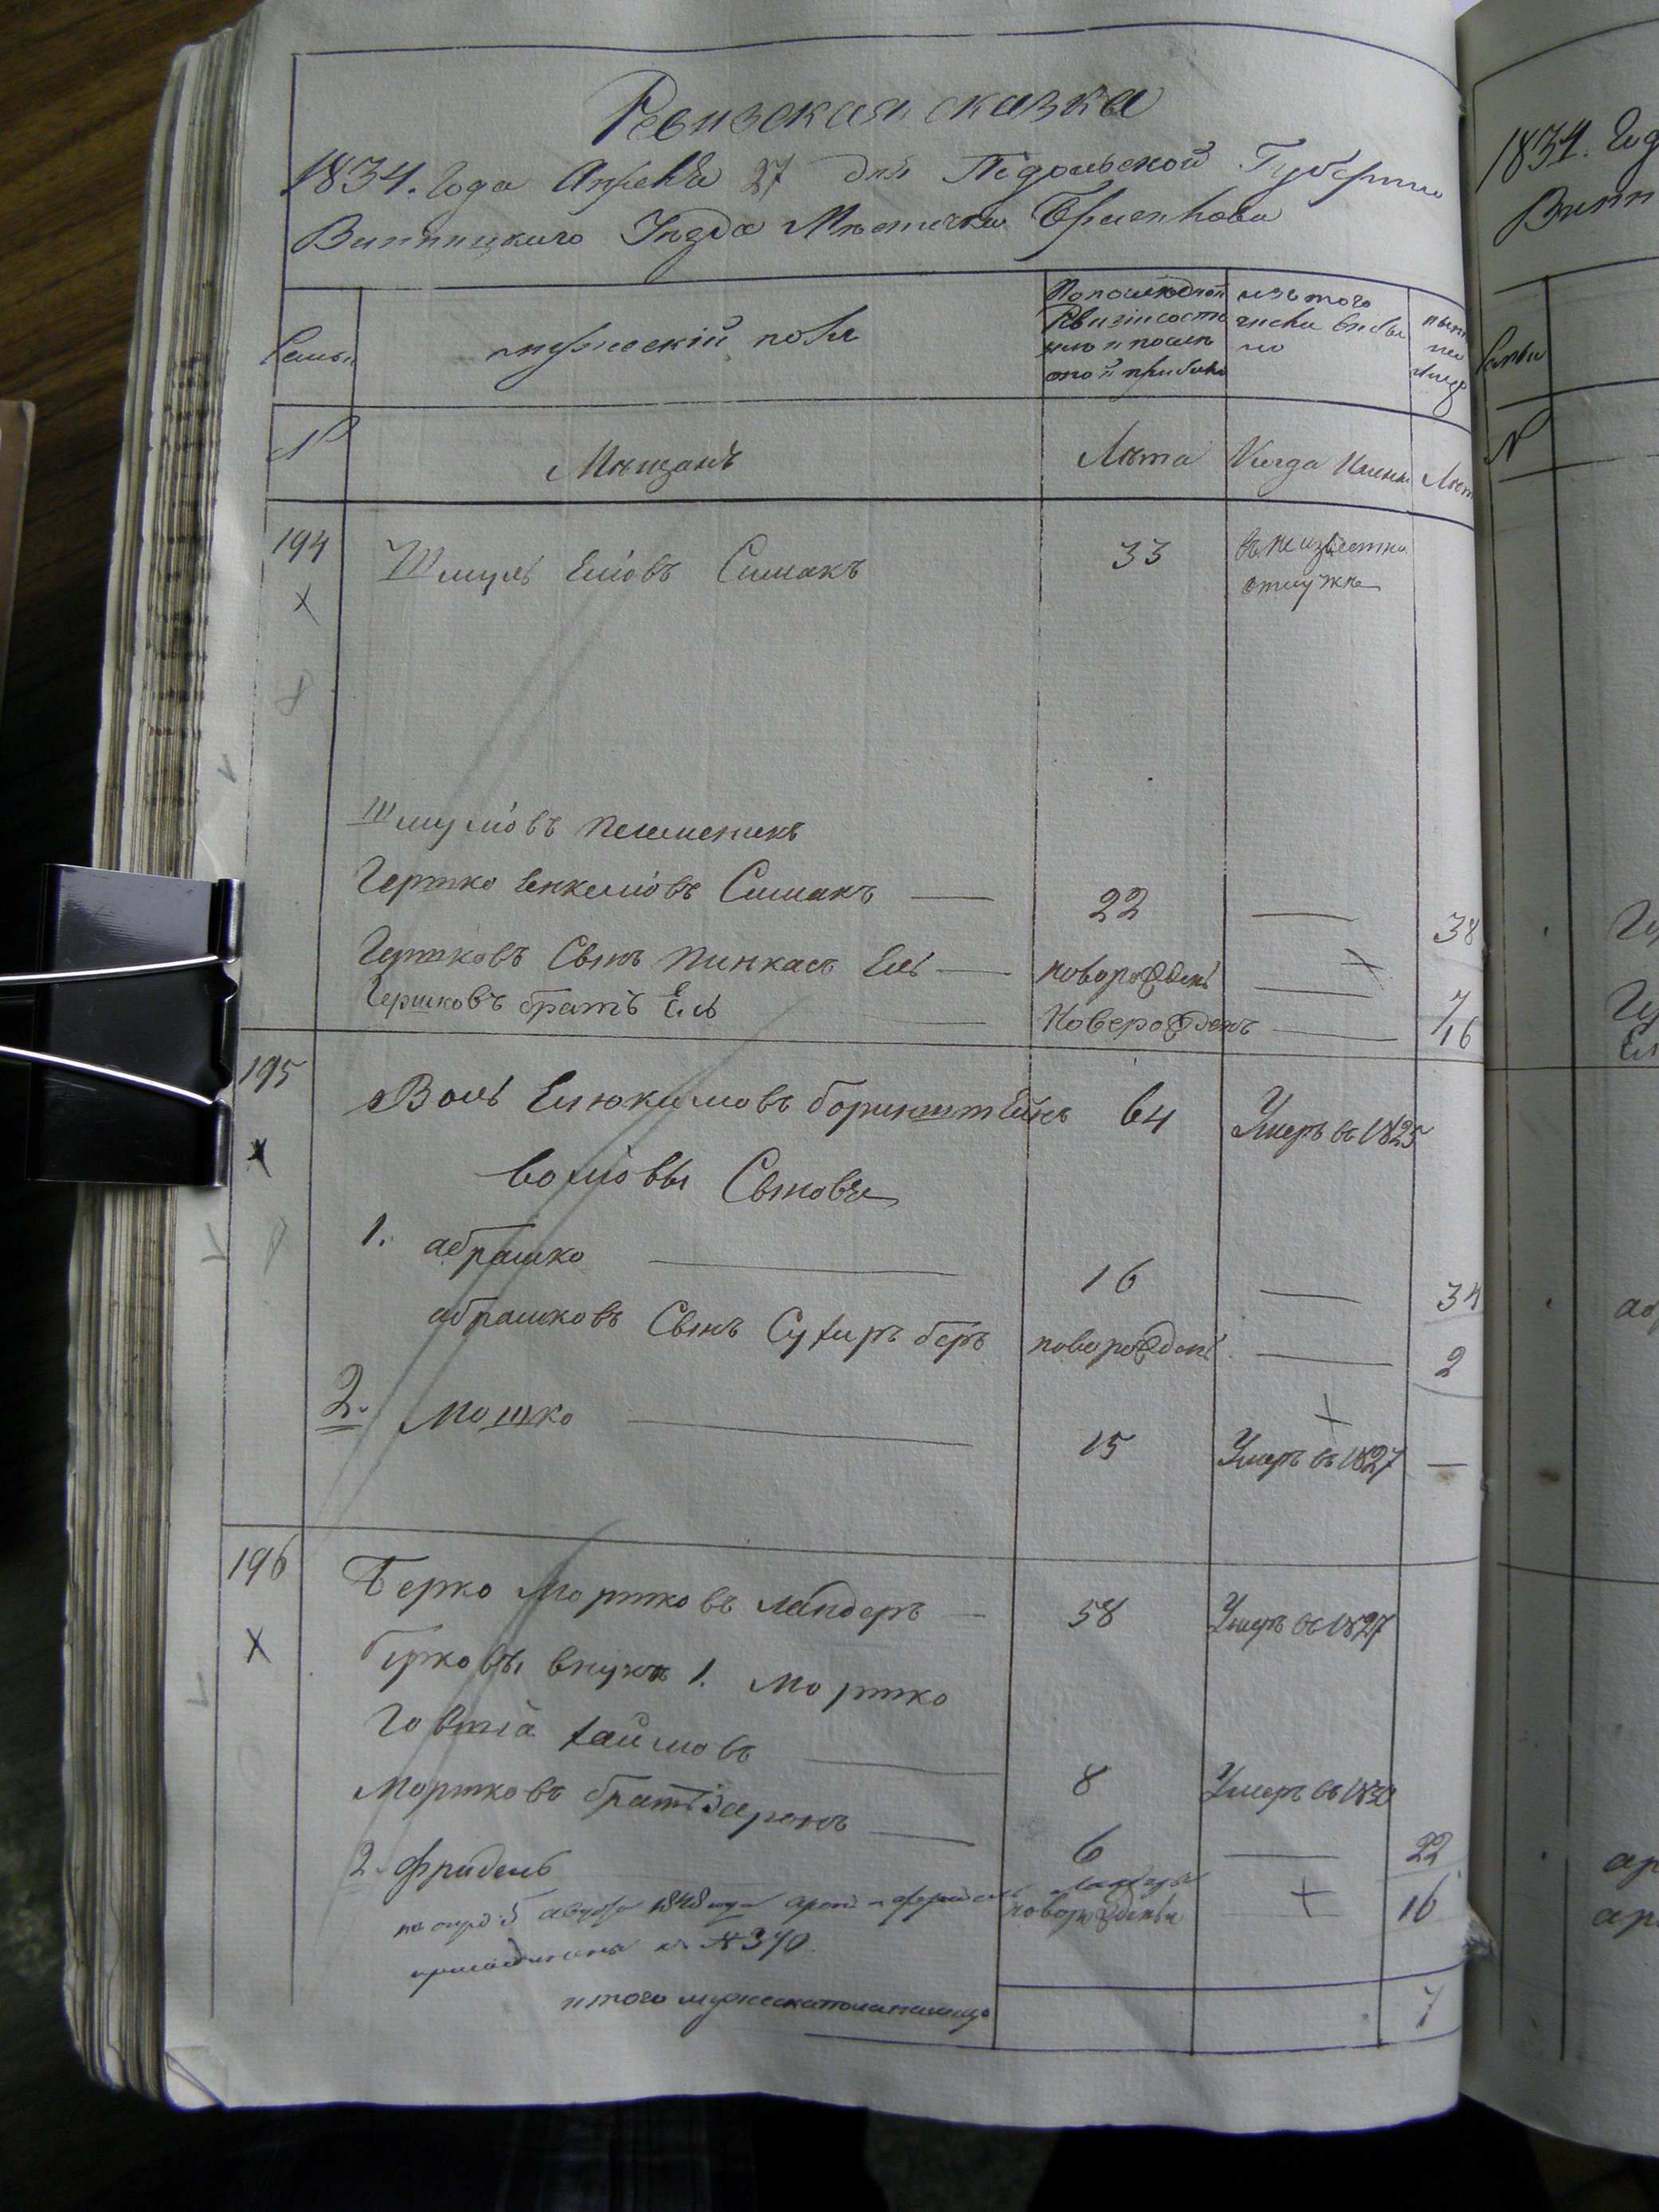 Ревизская сказка
1834. Года Апреля 27 дня Подольской Губернии
Винницкаго Уезда Местечка Браилова
Семьи
мужеский полъ
По последней Ревизіи состояло и после оной прибыло
изъ того числа выбыло
ныне на лицо
№
Мещанъ
Лета
Когда Именно
Лета
194
Шмуль Еліовъ Симакъ
33
въ неизвестной отлучке
Шмуліовъ племеникъ
Гершко Енкеліовъ Симакъ
22
38
Гершковъ Сынъ Пинкасъ Ель
новорожденъ
7
Гершковъ братъ Ель
Новорожденъ
16
195
Воль Елюкимовъ боринштейнъ
64
Умеръ въ 1825
воліовы Сыновя
1. абрашко
16
34
абрашковъ Сынъ Сухиръ беръ
новорожденъ
2
2. Мошко
15
Умеръ въ 1827
196
Берко Моршковъ ландеръ
58
Умеръ въ 1827
берковы внуки 1. Моршко
Говшіа хаимовъ
8
Умеръ въ 1830
Моршковъ братъ аронъ
6
22
2. фридель
новорожденъ
16
5 августа 1848 года аронъ и фридель ландеры
№ 340
итого мужеска пола налицо
7
1834. Год
Винн
Семьи
№